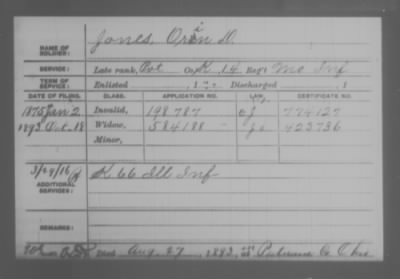 NAME OF SOLDIER: Jones, Oren D.
SERVICE: Late rank, Pvt Co. K, 14 Reg't Mo Inf
TERM OF SERVICE: Enlisted , 1 Discharged , 1
DATE OF FILING. CLASS. APPLICATION NO. LAW. CERTIFICATE NO.
1875 Jan 2 Invalid, 198787
1893 Oct. 18 Widow, 584188 423736
Minor,
3/29/16
ADDITIONAL SERVICES: K 66 Ill Inf
REMARKS:
Died Aug. 27, 1893, at Putnam Co. Ohio